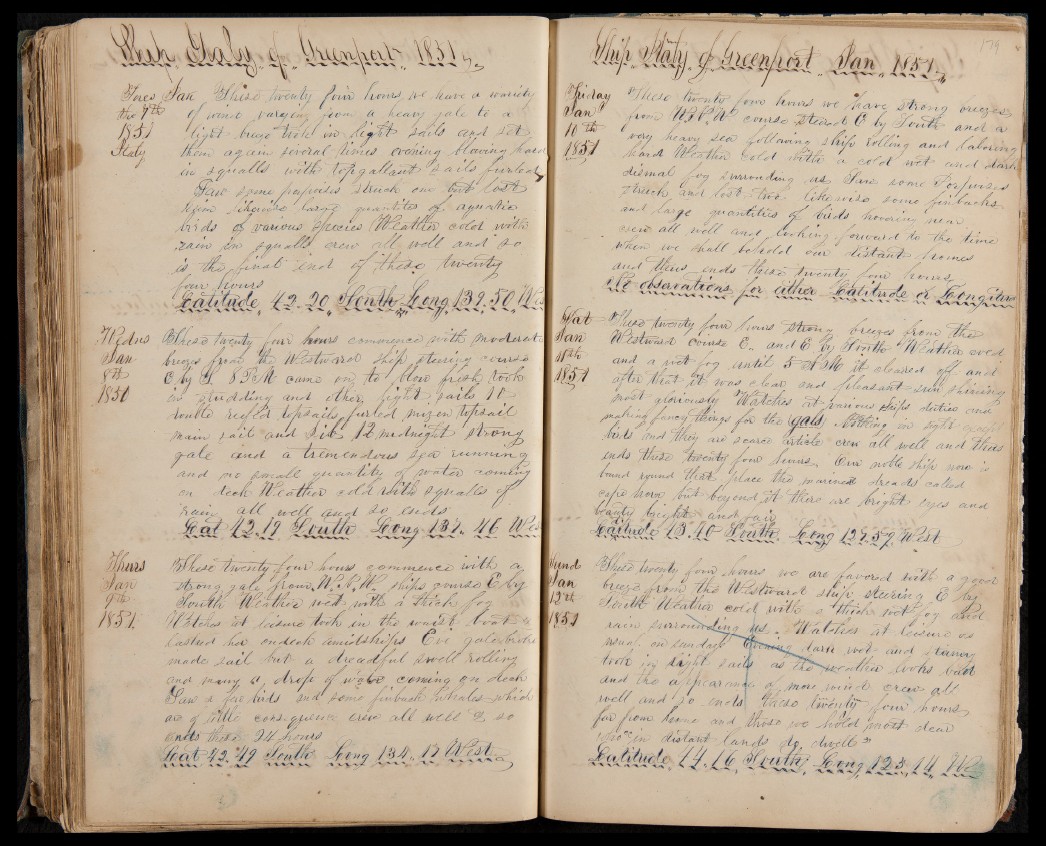 Ship Italy of Greenport 1851
Tues Jan
the 7th
1851
Italy
These twenty four hours we have a variety
of wind varying from a heavy gale to a
light breeze took in light sails and set
them again several times evening blowing hard
in squalls with topgallant sails furled
Saw some porpoises struck one but lost
likewise large quantities of aquatic
birds of various species Weather cold with
rain in squalls crew all well and so
is the final end of these twenty
four hours
Latitude 42..20 South Long 139..50 West
Wednes
Jan
8th
1851
These twenty four hours commence with moderate
breezes from the Westward ship steering course
E by S. 8 PM came on to blow fresh took
in studding and other light sails 10
double reefed topsails furled mizen topsail
main sail and Jib 12 midnight strong
gale and a tremendous sea running
and no small quantity of water coming
on deck Weather cold with squalls of
rain all well and so ends
Lat 42..19 South Long 137..46 West
Thurs
Jan
9th
1851.
These twenty four hours commence with a
strong gale from W.N.W. ships course E by
South Weather wet with a thick fog
Watches at leisure took in the waist boat &
lashed her on deck amidships Eve gale broke
made sail but a dreadful swell rolling
and many a drop of water coming on deck
Saw a few birds and some finback whales which
are of little consequence crew all well & so
ends these 24 hours
Lat 42..47 South Long 134..17 West
179
Ship Italy of Greenport Jan 1851
Friday
Jan
10th
1851
These twenty four hours we have strong breezes
from W.N.W course steered E by South and a
very heavy sea following ship rolling and laboring
hard Weather Cold with a cold wet and dark
dismal fog surrounding us Saw some Porpoises
struck and lost two likewise some finbacks
and large quantities of birds hovering near
crew all well and looking forward to the time
when we shall behold our distant homes
and thus ends these twenty four hours
No observations for either Latitude or Longitude
Sat
Jan
11th
1851
These twenty four hours strong breezes from the
Westward course E.. and E by South Weather
and a wet fog until 5 PM it cleared off and
after that it was clear and pleasant sun shining
most gloriously Watches at various ships duties and
making fancy things for the (gals) Nothing in sight except
birds and they are scarce article crew all well and thus
ends these twenty four hours. Our noble ship now is
bound round that place the mariner dreads called
cape horn but beyond it there are bright eyes and
beauty bright and fair
Latitude 43..40 South Long 127.57 West
Sund
Jan
12th
1851
These twenty four hours we are favored with a good
breeze from the Westward ship steering E by
South Weather cold with a thick wet fog and
rain surrounding us. Watches at leisure as
usual on sunday Evening dark wet and stormy
took in light sails as the weather looks bad
and the appearance of more wind crew all
well and so ends these twenty four hours
far from home and those we hold most dear
in distant lands do dwell
Latitude 44..16 South Long 123..14 West